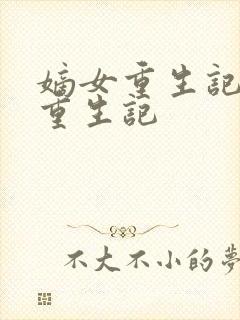 嫡女重生記
重生記
不大不小的夢